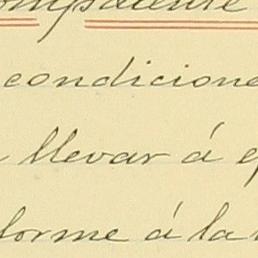 comparente
condicione
llevar á e
forme á la